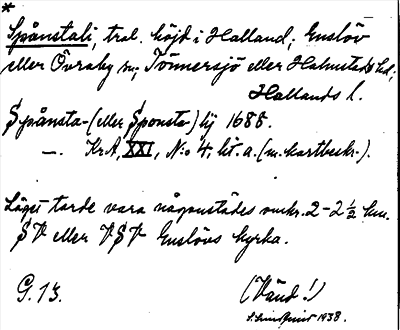 *
Spånstali, trol. höjd i Halland; Enslöv
eller Övraby sn; Tönnersjö eller Halmstads hd;
Hallands l.
Spånsta- (eller Sponsta-) lij 1688.
—. KrA, XXI, N:o 4, lit. a. (m. kartbeskr.).
Läget torde vara någonstädes omkr. 2-2½ km.
SV eller VSV Enslövs kyrka.
G. 13.
(Vänd!)
1938.